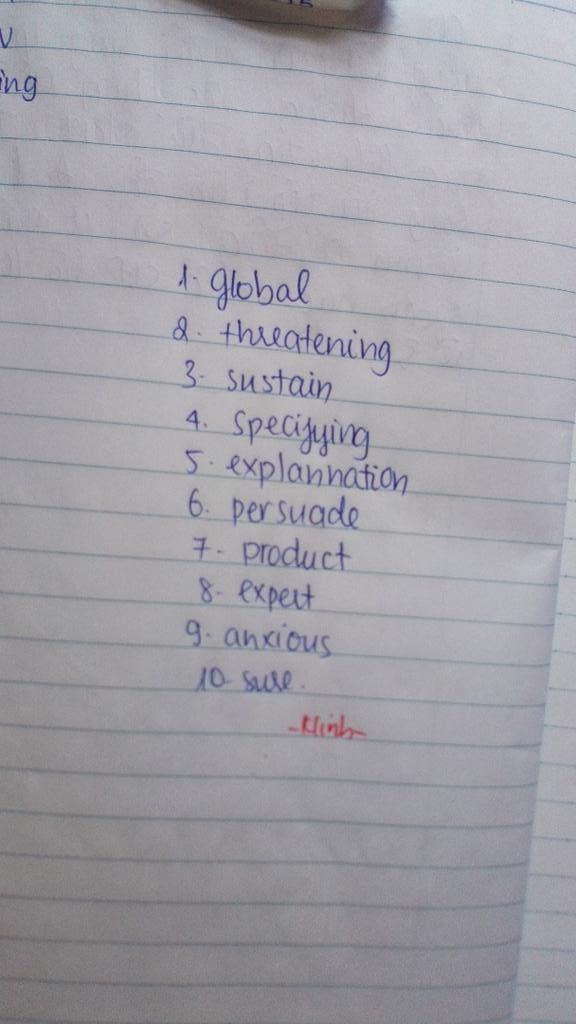 ing
1. global
2. threatening
3. sustain
4. specifying
5. explannation
6. persuade
7. product
8. expert
9. anxious
10. sure.